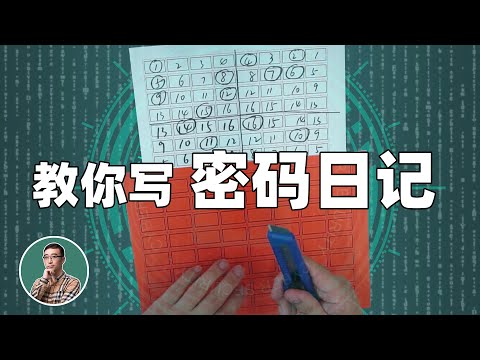 ① 2 3 ④ 3 ② 1
⑤ 6 7 ⑧ 8 ⑦ ⑥ 5
⑨ 10 11 ⑫ 12 11 10 9
13 14 ⑮ 16 16 15 14 13
13 ⑭ 15 16 ⑯ 15 14 13
9 10 ⑪ 12 12 11 ⑩ 9
教你写 密码日记